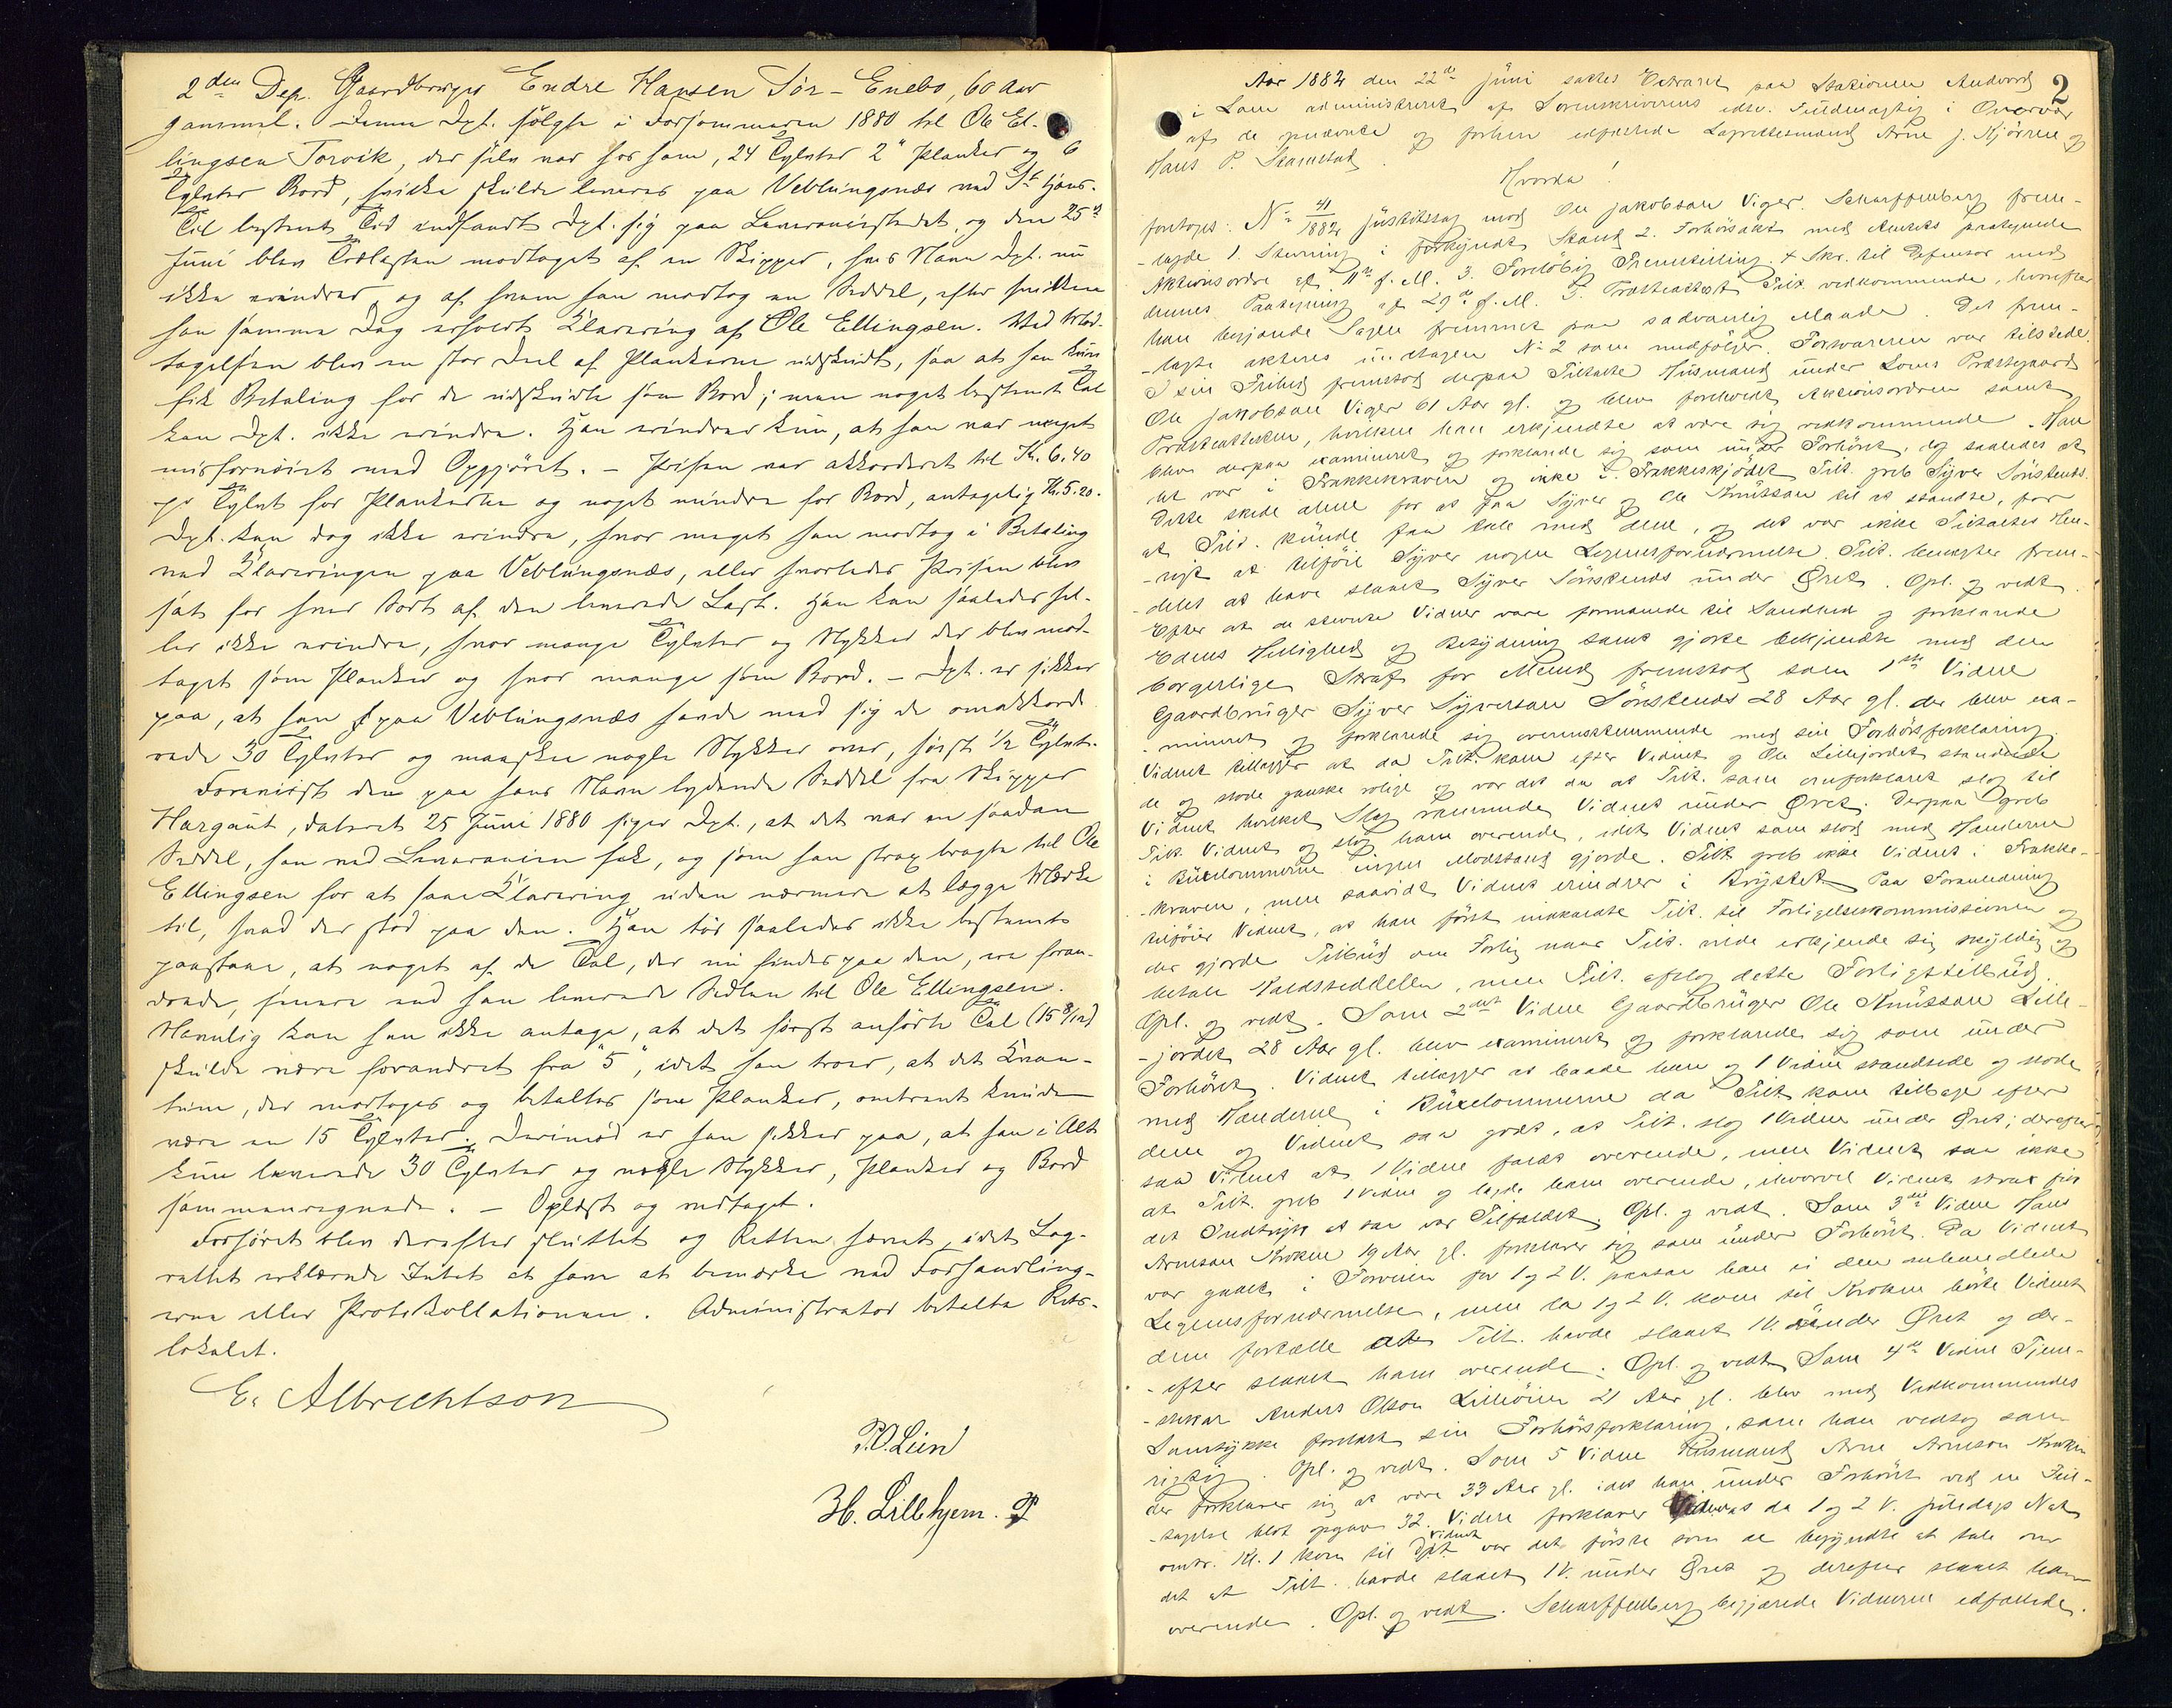 2den Dep. Gaardbruger Endre Hansen Sør-Enebo, 60 Aar
gammel. Denne Dpt. solgte i Forsommeren 1880 til Ole El-
lingsen Torvik, der selv var hos ham, 24 Tylvter 2" Planker og 6
Tylvter Bord, hvilke skulde leveres paa Veblungsnæs ved St Hans.
Til bestemt Tid indfandt Dpt. sig paa Leverancestedet, og den 25de
Juni blev Trælasten modtaget af en Skipper, hvis Navn Dpt. nu
ikke erindrer, og af hvem han modtog en Seddel, efter hvilken
han samme Dag erholdt Klarering af Ole Ellingsen. Ved Mod-
tagelsen blev en stor Deel af Plankerne udskudt, saa at han kun
fik Betaling for de udskudte som Bord; men noget bestemt Tal
kan Dpt. ikke erindre. Han erindrer kun, at han var noget
misfornøiet med Opgjøret. – Prisen var akkorderet til Kr. 6.40
pr Tylvt for Plankerne og noget mindre for Bord, antagelig Kr. 5.20.
Dpt. kan dog ikke erindre, hvor meget han modtog i Betaling
ved Klareringen paa Veblungsnæs, eller hvorledes Prisen blev
sat for hver Sort af den leverede Last. Han kan saaledes hel-
ler ikke erindre, hvor mange Tylvter og Stykker der blev mod-
taget som Planker og hvor mange som Bord. – Dpt. er sikker
paa, at han paa Veblungsnæs havde med sig de omakkorde
rede 30 Tylvter og maaske nogle Stykker over, høist 1/2 Tylvt.
Forevist den paa hans Navn lydende Seddel fra Skipper
Hargaut, dateret 25 Juni 1880 siger Dpt., at det var en saadan
Seddel, han ved Leverancen fik, og som han strax bragte til Ole
Ellingsen for at faae Klarering, uden nærmere at lægge Mærke
til, hvad der stod paa den. Han tør saaledes ikke bestemt
paastaae, at noget af de Tal, der nu findes paa den, ere foran-
drede, senere end han leverede Sedlen til Ole Ellingsen.
Navnlig kan han ikke antage, at det først anførte Tal (15 8/12)
skulde være forandret fra "5", idet han troer, at det Kvan-
tum, der modtoges og betaltes som Planker, omtrent kunde
være en 15 Tylvter. Derimod er han sikker paa, at han i Alt
kun leverede 30 Tylvter og nogle Stykker, Planker og Bord
sammenregnede. – Oplæst og vedtaget.
Forhøret blev derefter sluttet og Retten hævet, idet Lag-
rettet erklærede Intet at have at bemærke ved Forhandling-
erne eller Protokollationen. Administrator betalte Rets-
lokalet.
E. Albrechtson
P. O. Lien
H. Lillehjem.
2
Aar 1884 den 22de Juni sattes Extraret paa Stationen Andvord
i Lom administreret af Sorenskriverens edsv. Fuldmægtig i Overvær
af de nævnte og forhen edfæstede Laprettesmænd Arne J. Kjörren og
Hans P. Skamstad.
Hvorda!
foretoges: No 41/1884 Justitssag mod Ole Jakobsen Viger. Scharffenberg frem-
-lagde 1. Stevning i forkyndt Stand 2. Forhörsakt med Amtets paategnede
Aktionsordre af 11te f. M. 3. Foreløbig Fremstilling. 4 Skr. til Defensor med
dennes Paategning af 29de f. M. 5. Præsteattest Tilt. vedkommende, hvorefter
han begjærede Sagen fremmet paa sædvanlig Maade. Det frem-
-lagte akteres undtagen No 2 som medfølger. Forsvareren var tilstede.
I sin Frihed fremstod derpaa Tiltalte Husmand under Loms Præstegaard
Ole Jakobsen Viger 61 Aar gl. og blev foreholdt Aktionsordren samt
Præsteattesten, hvilken han erkjendte at være sig vedkommende. Han
blev derpaa examineret og forklarede sig som under Forhöret, dog saaledes at
det var i Frakkekraven og ikke i Frakkeskjødet Tilt. greb Syver Sönstenes.
Dette skede alene for at faa Syver og Ole Knutson til at standse, for
at Tilt. kunde faa tale med dem, og det var ikke Tiltaltes Hen-
-sigt at tilföie Syver nogen Legemsfornærmelse. Tilt. benægter frem-
-deles at have slaaet Syver Sönstenes under Öret. Opl. og vedt.
Efter at de stevnte Vidner vare formanede til Sandhed og forklarede
Edens Hellighed og Betydning samt gjorte bekjendte med den
borgerlige Straf for Mened fremstod som 1ste Vidne
Gaardbruger Syver Syversen Sönstenes 28 Aar gl. der blev exa-
-mineret og forklarede sig overensstemmende med sin Forhörsforklaring.
Vidnet tillægger at da Tilt. kom efter Vidnet og Ole Lillejordet standsede
de og stode ganske rolige og var det da at Tilt. som omforklaret slog til
Vidnet hvilket Slag rammede Vidnet under Öret. Derpaa greb
Tilt. Vidnet og slog ham overende, idet Vidnet som stod med Hænderne
i Buxelommerne ingen Modstand gjorde. Tilt. greb ikke Vidnet i Frakke-
-kraven, men saavidt Vidnet erindrer i Brystet. Paa Foranledning
tilföier Vidnet, at han först indkaldte Tilt. til Forligelseskommissionen og
der gjorde Tilbud om Forlig naar Tilt. vilde erkjende sig skyldig og
betale Kaldsseddelen, men Tilt. afslog dette Forligstilbud.
Opl. og vedt. Som 2det Vidne Gaardbruger Ole Knutson Lille-
-jordet 28 Aar gl. blev examineret og forklarede sig som under
Forhöret. Vidnet tillægger at baade han og 1 Vidne standsede og stode
med Hænderne i Buxelommerne da Tilt. kom tilbage efter
dem og Vidnet saa godt, at Tilt. slog 1 Vidne under Öret; derefter
saa Vidnet at 1 Vidne faldt overende, men Vidnet saa ikke
at Tilt. greb 1 Vidne og lagde ham overende, ihvorvel Vidnet strax fik
det Indtryk at saa var Tilfældet. Opl. og vedt. Som 3die Vidne Hans
Arneson Kroken 19 Aar gl. forklarer sig som under Forhöret. Da Vidnet
var gaaet i Forveien for 1 og 2 V. paasaa han ei den omhandlede
Legemsfornærmelse, men da 1 og 2 V. kom til Kroken hörte Vidnet
dem fortælle at Tilt. havde slaaet 1 V. under Öret og der-
-efter slaaet ham overende. Opl. og vedt. Som 4de Vidne Tjene-
-stekar Anders Olson Lilleöien 21 Aar gl. blev med Vedkommendes
Samtykke forelæst sin Forhörsforklaring, som han vedtog som
rigtig. Opl. og vedt. Som 5 Vidne Husmand Arne Arneson Kroken
der forklarer sig at være 33 Aar gl. idet han under Forhöret ved en Feil-
-tagelse blot opgav 32. Videre forklarer Vidnet at da 1 og 2 V. Juledags Nat
omtr. Kl. 1 kom til Vidnet var det förste som de begyndte at tale om
det at Tilt. havde slaaet 1 V. under Öret og derefter slaaet ham
overende. Opl. og vedt. Scharffenberg begjærede Vidnerne edfæstede.